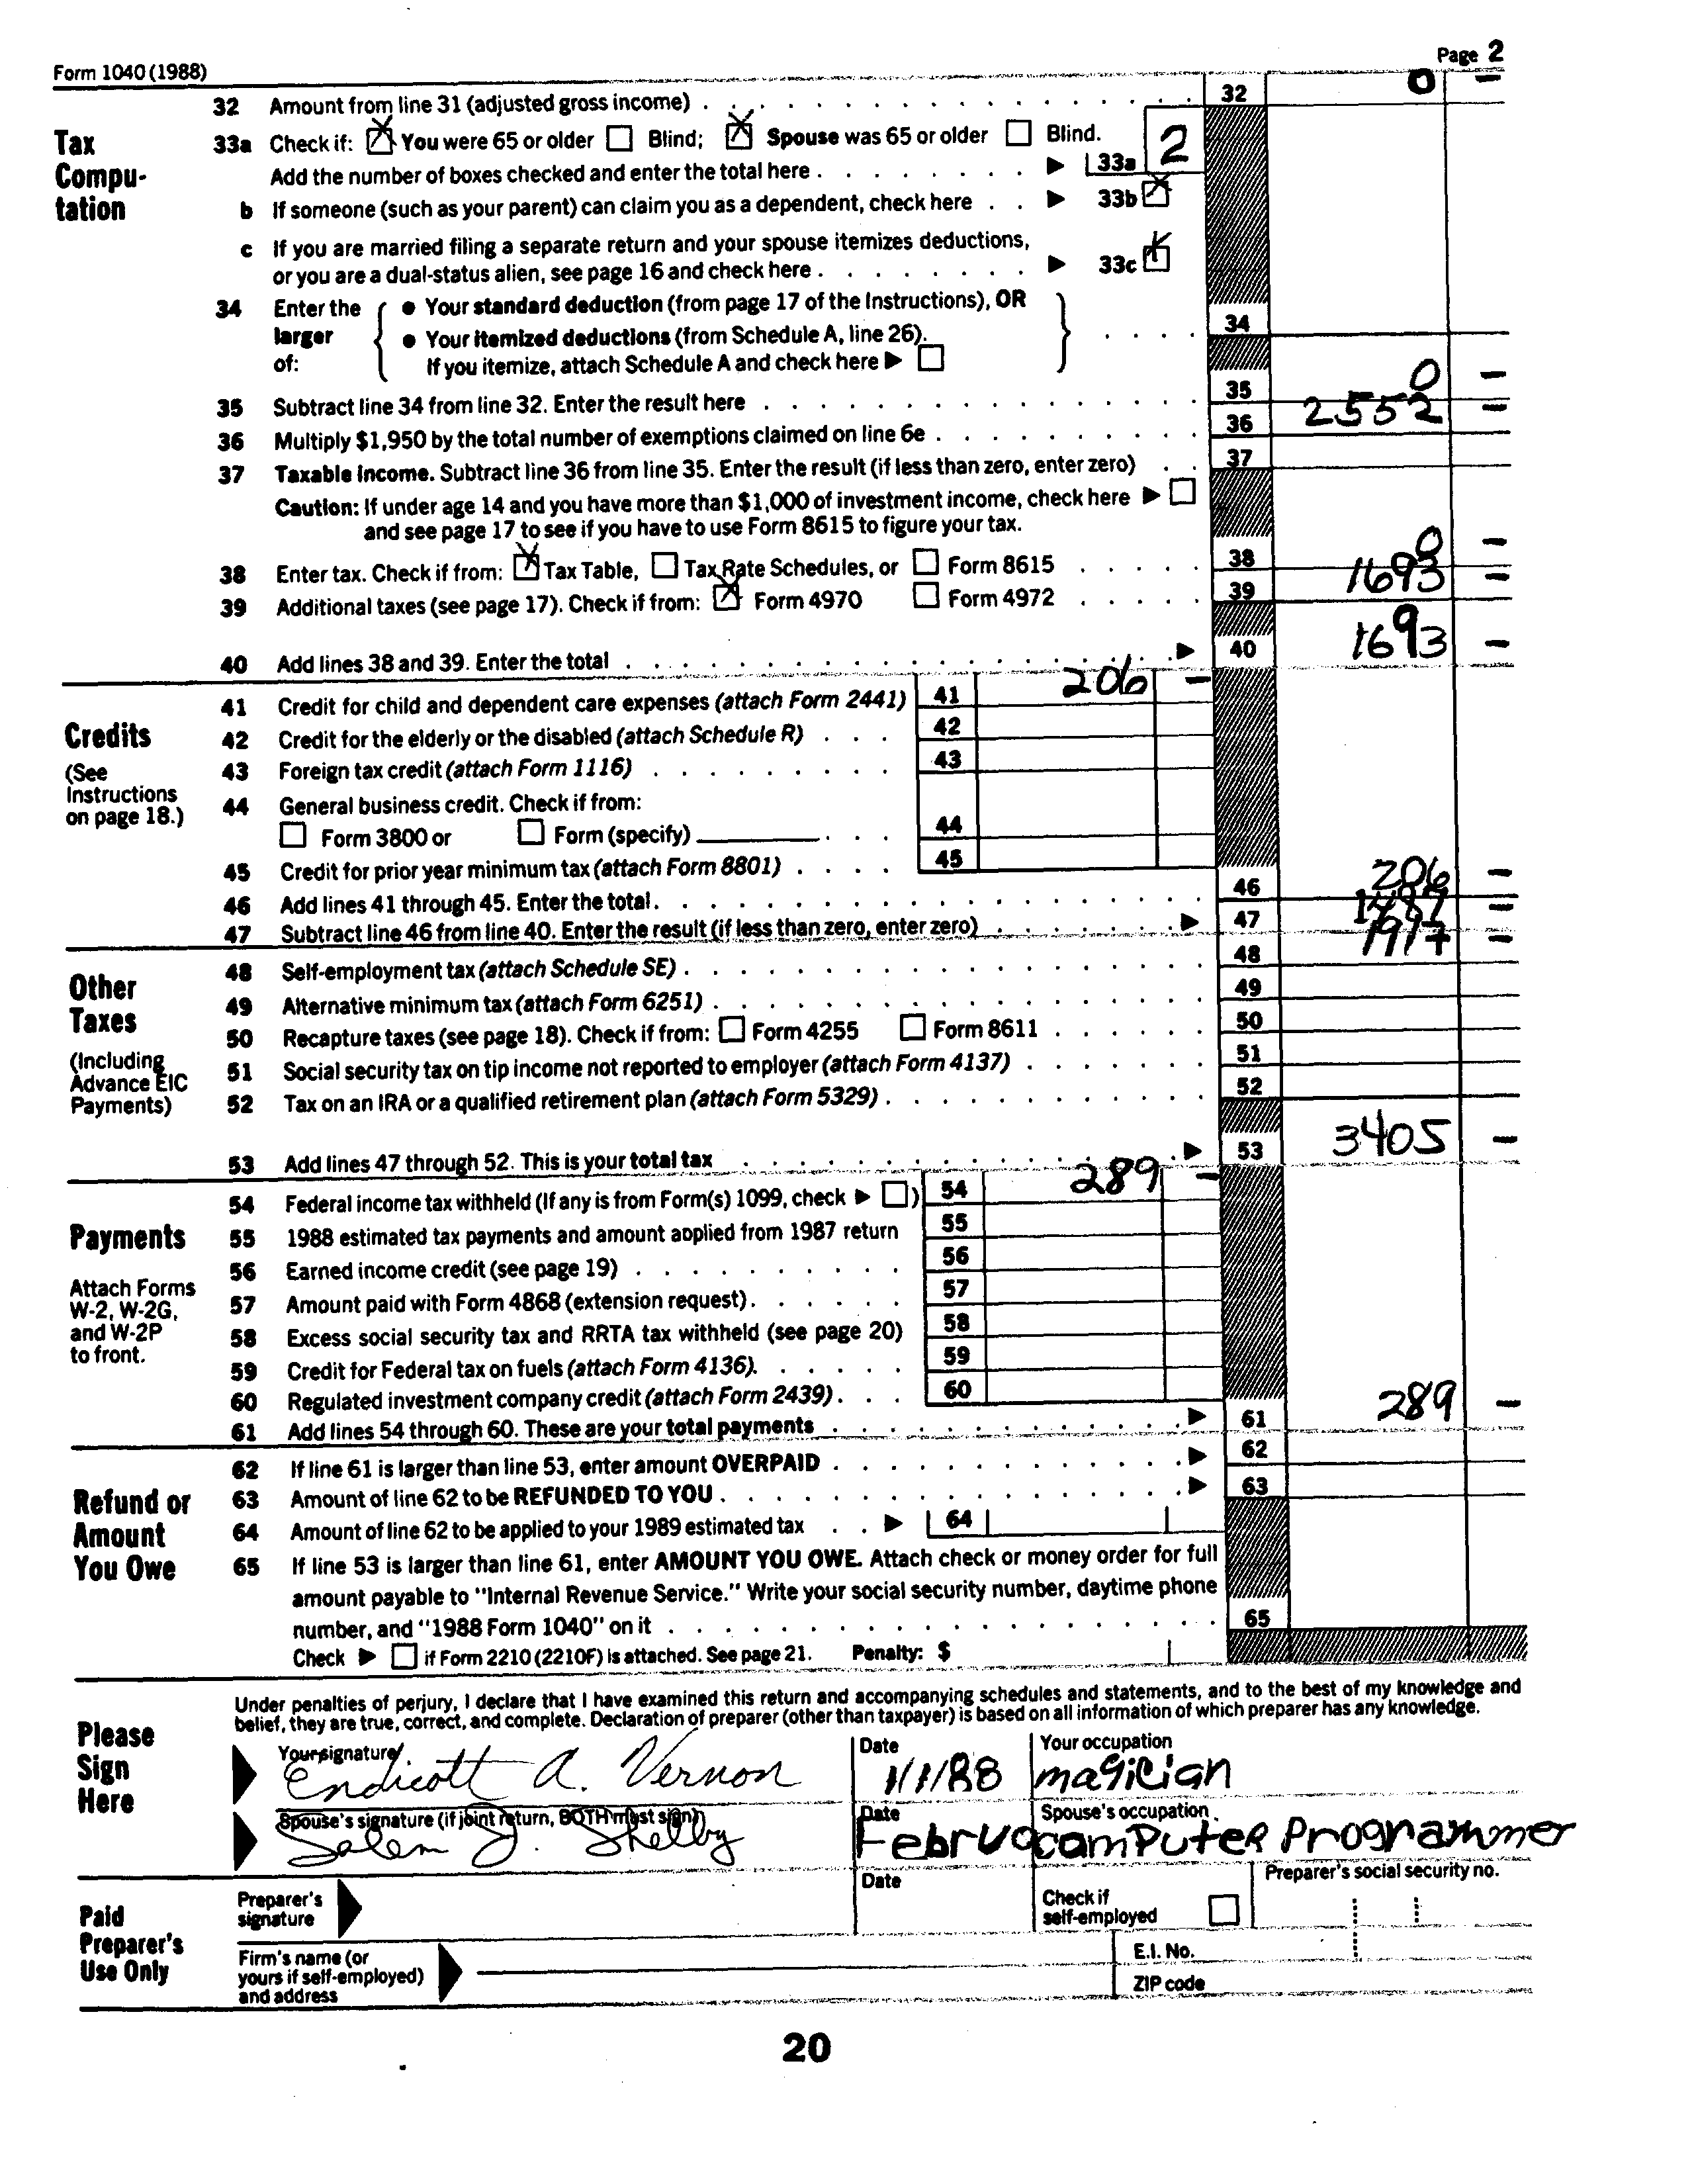 Form 1040 (1988) Page 2
32 Amount from line 31 (adjusted gross income) 32 0 —
Tax Compu-tation
33a Check if: X You were 65 or older Blind; X Spouse was 65 or older Blind.
Add the number of boxes checked and enter the total here 33a 2
b If someone (such as your parent) can claim you as a dependent, check here 33b X
c If you are married filing a separate return and your spouse itemizes deductions,
or you are a dual-status alien, see page 16 and check here 33c X
34 Enter the larger of:
• Your standard deduction (from page 17 of the Instructions), OR
• Your itemized deductions (from Schedule A, line 26).
If you itemize, attach Schedule A and check here
34
35 Subtract line 34 from line 32. Enter the result here 35 0 —
36 Multiply $1,950 by the total number of exemptions claimed on line 6e 36 2552 —
37 Taxable income. Subtract line 36 from line 35. Enter the result (if less than zero, enter zero) 37
Caution: If under age 14 and you have more than $1,000 of investment income, check here
and see page 17 to see if you have to use Form 8615 to figure your tax.
38 Enter tax. Check if from: X Tax Table, Tax Rate Schedules, or Form 8615 38 0 —
39 Additional taxes (see page 17). Check if from: X Form 4970 Form 4972 39 1693 —
40 Add lines 38 and 39. Enter the total 40 1693 —
Credits
(See Instructions on page 18.)
41 Credit for child and dependent care expenses (attach Form 2441) 41 206 —
42 Credit for the elderly or the disabled (attach Schedule R) 42
43 Foreign tax credit (attach Form 1116) 43
44 General business credit. Check if from:
Form 3800 or Form (specify) 44
45 Credit for prior year minimum tax (attach Form 8801) 45
46 Add lines 41 through 45. Enter the total. 46 206 —
47 Subtract line 46 from line 40. Enter the result (if less than zero, enter zero) 47 1487 —
Other Taxes
(Including Advance EIC Payments)
48 Self-employment tax (attach Schedule SE) 48 1917 —
49 Alternative minimum tax (attach Form 6251) 49
50 Recapture taxes (see page 18). Check if from: Form 4255 Form 8611 50
51 Social security tax on tip income not reported to employer (attach Form 4137) 51
52 Tax on an IRA or a qualified retirement plan (attach Form 5329) 52
53 Add lines 47 through 52. This is your total tax 53 3405 —
Payments
Attach Forms W-2, W-2G, and W-2P to front.
54 Federal income tax withheld (If any is from Form(s) 1099, check ) 54 289 —
55 1988 estimated tax payments and amount applied from 1987 return 55
56 Earned income credit (see page 19) 56
57 Amount paid with Form 4868 (extension request) 57
58 Excess social security tax and RRTA tax withheld (see page 20) 58
59 Credit for Federal tax on fuels (attach Form 4136). 59
60 Regulated investment company credit (attach Form 2439) 60
61 Add lines 54 through 60. These are your total payments 61 289 —
Refund or Amount You Owe
62 If line 61 is larger than line 53, enter amount OVERPAID 62
63 Amount of line 62 to be REFUNDED TO YOU 63
64 Amount of line 62 to be applied to your 1989 estimated tax 64
65 If line 53 is larger than line 61, enter AMOUNT YOU OWE. Attach check or money order for full
amount payable to "Internal Revenue Service." Write your social security number, daytime phone
number, and "1988 Form 1040" on it 65
Check if Form 2210 (2210F) is attached. See page 21. Penalty: $
Please Sign Here
Under penalties of perjury, I declare that I have examined this return and accompanying schedules and statements, and to the best of my knowledge and
belief, they are true, correct, and complete. Declaration of preparer (other than taxpayer) is based on all information of which preparer has any knowledge.
Your signature Date Your occupation
Endicott A. Vernon 1/1/88 magician
Spouse's signature (if joint return, BOTH must sign) Date Spouse's occupation
Salem J. Shelby Februa computer programmer
Paid Preparer's Use Only
Preparer's signature Date Check if self-employed Preparer's social security no.
Firm's name (or yours if self-employed) and address E.I. No.
ZIP code
20